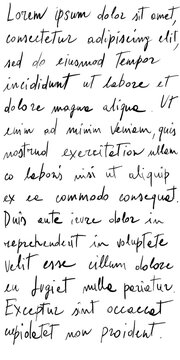 Lorem ipsum dolor sit amet,
consectetur adipiscing elit,
sed do eiusmod tempor
incididunt ut labore et
dolore magna aliqua. Ut
enim ad minim veniam, quis
nostrud exercitation ullam
co laboris nisi ut aliquip
ex ea commodo consequat.
Duis aute irure dolor in
reprehenderit in voluptate
velit esse cillum dolore
eu fugiat nulla pariatur.
Excepteur sint occaecat
cupidatat non proident.